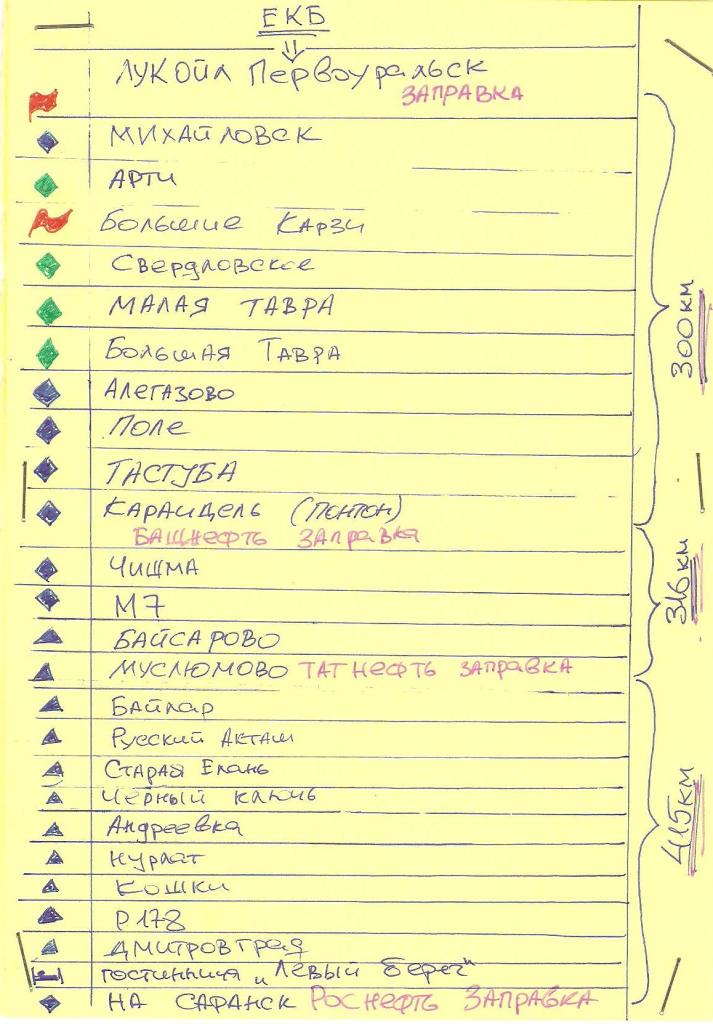 ЕКБ
ЛУКОЙЛ Первоуральск
ЗАПРАВКА
МИХАЙЛОВСК
АРТИ
Большие Карзи
Свердловское
МАЛАЯ ТАВРА
Большая Тавра
Алегазово
Поле
ТАСТУБА
Караидель (Понтон)
БАШНЕФТЬ ЗАПРАВКА
300км
Чишма
М7
БАЙСАРОВО
МУСЛЮМОВО ТАТНЕФТЬ ЗАПРАВКА
316км
Байлар
Русский Акташ
Старая Елань
Черный ключь
Андреевка
Нурлат
Кошки
Р178
Дмитровград
гостинница „Левый берег"
НА САРАНСК РОСНЕФТЬ ЗАПРАВКА
415км